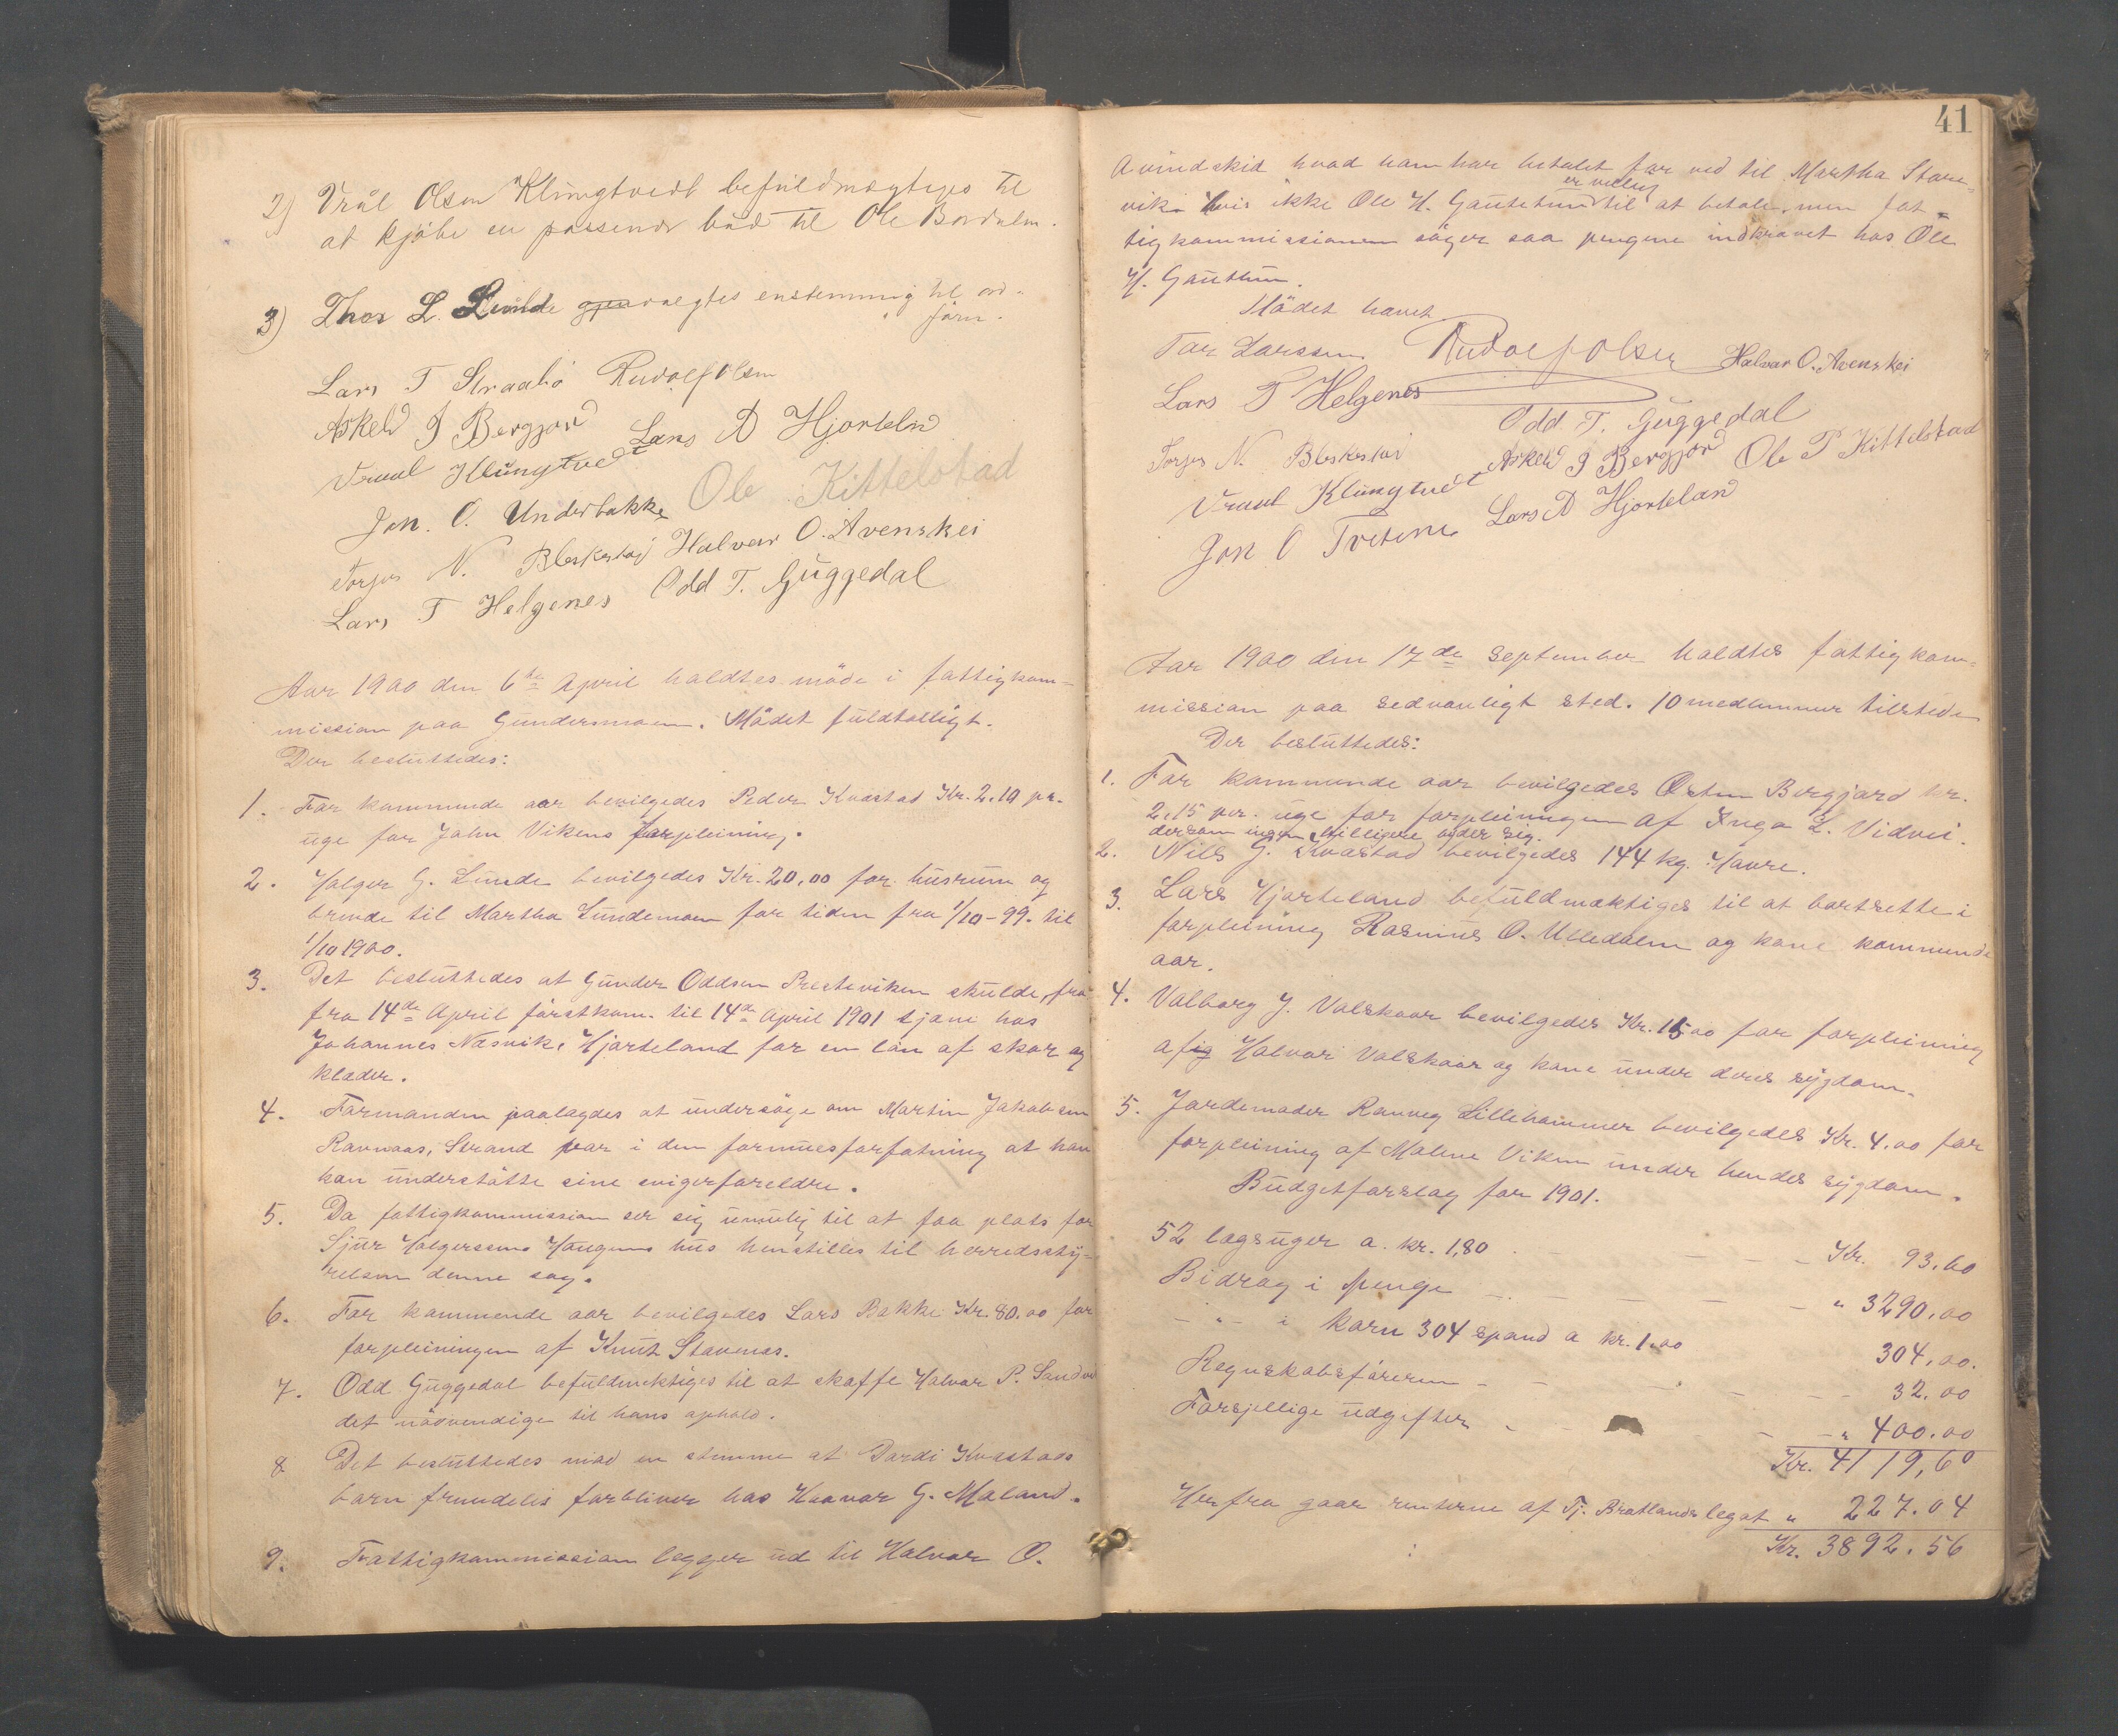 2) Vrål Olsen Klungtvedt befuldmægtiges til
at kjøbe en passende båd til Ole Bordalen.
3) Thor L. Lunde gjen valgtes enstemmig til ord-
förer.
Lars T Straabö Rudolf Olsen
Askeld J Bergjord Lars A Hjorteland
Vraal Klungtvedt
Jon. O. Underbakke Ole Kittelstad
Torjus N. Bleskestad Halvar O. Avenskei
Lars T Helgenes Odd T. Guggedal
Aar 1900 den 6te April holdtes möde i fattigkom-
mission paa Gundersmoen. Mödet fuldtalligt.
Der besluttedes:
1. For kommende aar bevilgedes Peder Kvastad Kr. 2.10 pr.
uge for John Vikens forpleining.
2. Holger G. Lunde bevilgedes Kr. 20,00 for husrum og
brende til Martha Lundemoen for tiden fra 1/10-99. til
1/10 1900.
3. Det besluttedes at Gunder Oddsen Presteviken skulde, fra
fra 14de April förstkom. til 14de April 1901 tjene hos
Johannes Næsvik, Hjorteland for en lön af skor og
klæder.
4. Formanden paalagdes at undersöge om Martin Jakobsen
Ravnaas, Strand var i den formuesforfatning at han
kan understötte sine svigerforeldre.
5. Da fattigkommission ser sig umulig til at faa plads for
Sjur Holgersens Haugens hus henstilles til herredssty-
relsen denne sag.
6. For kommende aar bevilgedes Lars Bakke Kr. 80.00 for
forpleiningen af Knut Stavenes.
7. Odd Guggedal befuldmektiges til at skaffe Halvor P. Sandvik
det nödvendige til hans ophold.
8 Det besluttedes med en stemme at Dardi Kvastads
barn fremdeles forbliver hos Haavar G. Maland.
9. Fattigkommission legger ud til Halvor O.
41
Avindskid hvad han har betalet for ved til Martha Store-
er villig
vik. hvis ikke Ole H. Gautetun til at betale, men fat-
tigkommissionen söger saa pengene indkrævet hos Ole
H. Gautun.
Mödet hævet
Tor Larssen Rudolf Olsen Halvar O. Avenskei
Lars T Helgenes
Odd T. Guggedal
Torjus N. Bleskestad Askeld J Bergjord Ole P Kittelstad
Vraal Klungtvedt
Jon O Tvetene Lars A Hjorteland
Aar 1900 den 17de September holdtes fattigkom-
mission paa sedvanligt sted. 10 medlemmer tilstede
Der besluttedes:
1. For kommende aar bevilgedes Östen Bergjord kr.
2,15 per. uge for forpleiningen af Inga L. Vidvei.
dersom ingen billigere byder sig.
2. Nils G. Kvastad bevilgedes 144 kg. Havre.
3. Lars Hjorteland befuldmæktiges til at bortsette i
forpleining Rasmus O. Ulledalen og kone kommende
aar.
4. Valborg J. Valskaar bevilgedes Kr. 15.00 for forpleining
af Halvor Valskaar og kone under deres sygdom.
5. Jordemoder Ranveg Lillehammer bevilgedes Kr. 4.00 for
forpleining af Malene Viken under hendes sygdom.
Budgetforslag for 1901.
52 lægsuger a. kr. 1,80 - - - Kr. 93.60
Bidrag i penge - - - - " 3290.00
- " - i korn 304 spand a kr. 1.00 304,00.
Regnskabsföreren - - - - 32.00
Forsjellige udgifter - - - - " 400.00
Kr. 4119,60
Herfra gaar renterne af Tj. Bratlands legat " 227.04
Kr. 3892.56